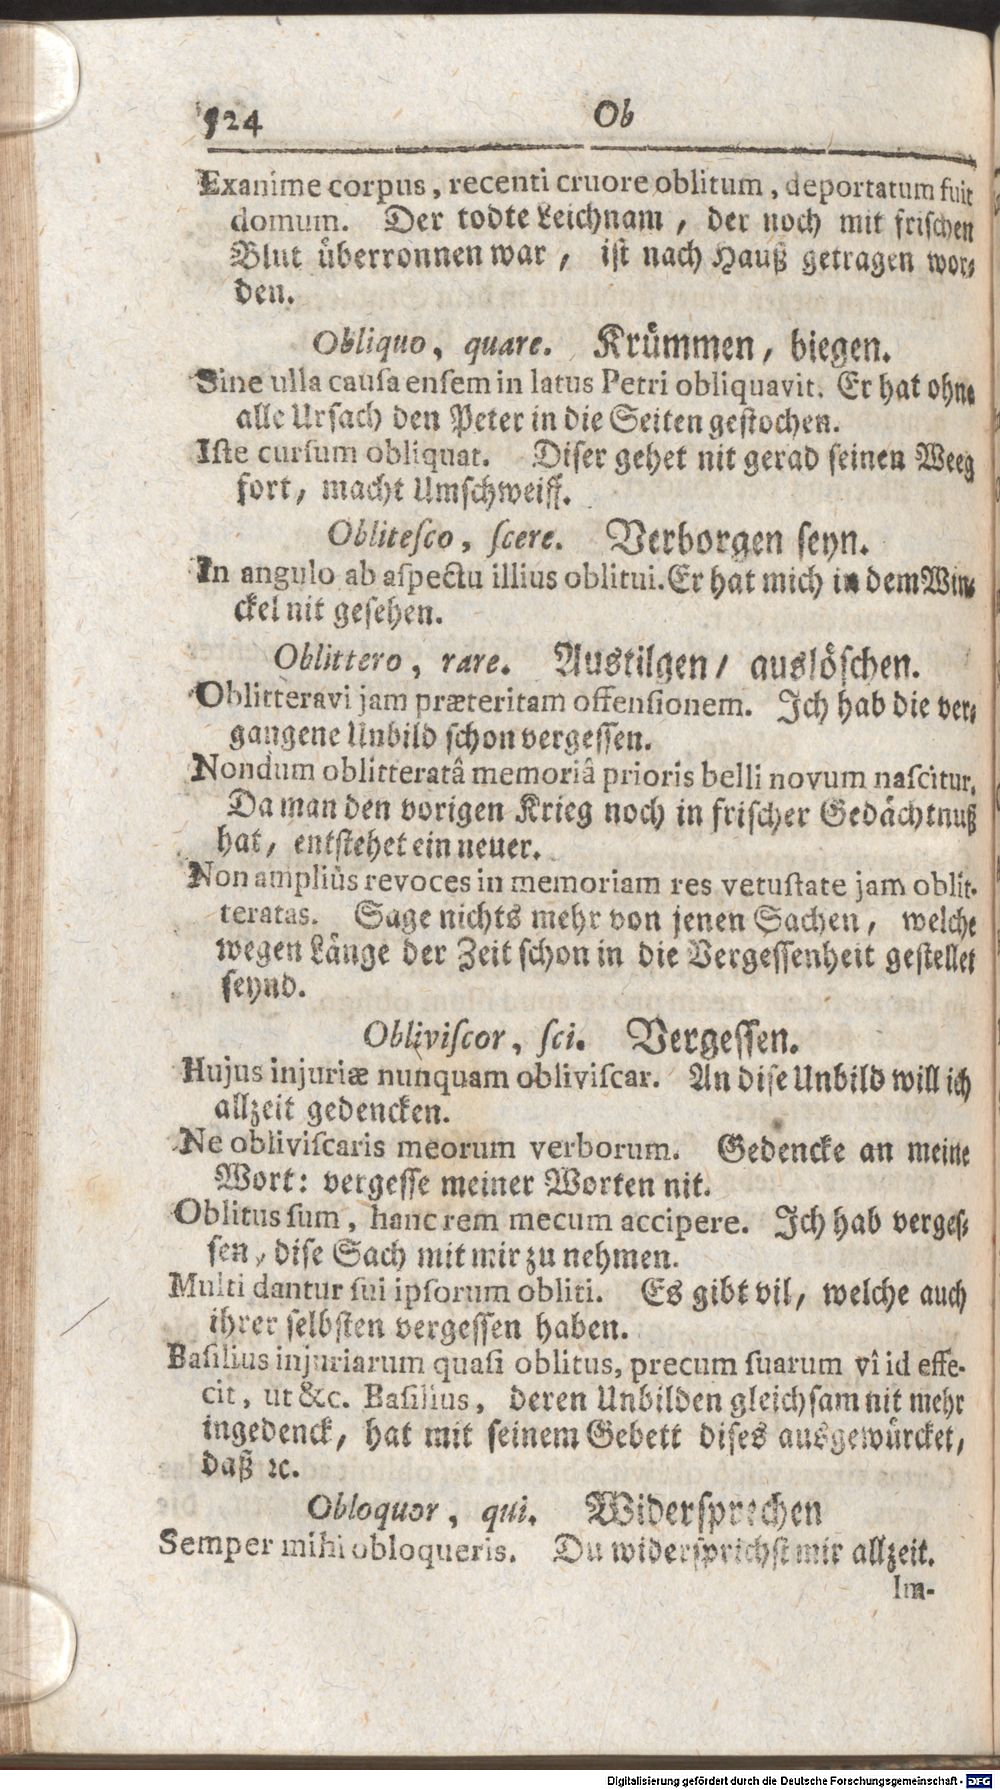 524 Ob
Exanime corpus, recenti cruore oblitum, deportatum fuit
domum. Der todte Leichnam, der noch mit frischen
Blut überronnen war, ist nach Hauß getragen wor-
den.
Obliquo, quare. Krümmen, biegen.
Sine ulla causa ensem in latus Petri obliquavit. Er hat ohne
alle Ursach den Peter in die Seiten gestochen.
Iste cursum obliquat. Diser gehet nit gerad seinen Weeg
fort, macht Umschweiff.
Oblitesco, scere. Verborgen seyn.
In angulo ab aspectu illius oblitui. Er hat mich in dem Win-
ckel nit gesehen.
Oblittero, rare. Austilgen / auslöschen.
Oblitteravi jam præteritam offensionem. Ich hab die ver-
gangene Unbild schon vergessen.
Nondum oblitteratâ memoriâ prioris belli novum nascitur.
Da man den vorigen Krieg noch in frischer Gedächtnuß
hat, entstehet ein neuer.
Non ampliùs revoces in memoriam res vetustate jam oblit-
teratas. Sage nichts mehr von jenen Sachen, welche
wegen Länge der Zeit schon in die Vergessenheit gestellet
seynd.
Obliviscor, sci. Vergessen.
Hujus injuriæ nunquam obliviscar. An dise Unbild will ich
allzeit gedencken.
Ne obliviscaris meorum verborum. Gedencke an meine
Wort: vergesse meiner Worten nit.
Oblitus sum, hanc rem mecum accipere. Ich hab verges-
sen, dise Sach mit mir zu nehmen.
Multi dantur sui ipsorum obliti. Es gibt vil, welche auch
ihrer selbsten vergessen haben.
Basilius injuriarum quasi oblitus, precum suarum vî id effe-
cit, ut &c. Basilius, deren Unbilden gleichsam nit mehr
ingedenck, hat mit seinem Gebett dises ausgewürcket,
daß ꝛc.
Obloquor, qui. Widersprechen
Semper mihi obloqueris. Du widersprichst mir allzeit.
Im-
Digitalisierung gefördert durch die Deutsche Forschungsgemeinschaft - DFG